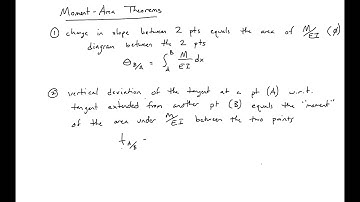 Moment-Area Theorems
① change in slope between 2 pts equals the area of M/EI (ϕ)
diagram between the 2 pts
θB/A = ∫_A^B M/EI dx
② vertical deviation of the tangent at a pt (A) w.r.t.
tangent extended from another pt (B) equals the "moment"
of the area under M/EI between the two points
tA/B -